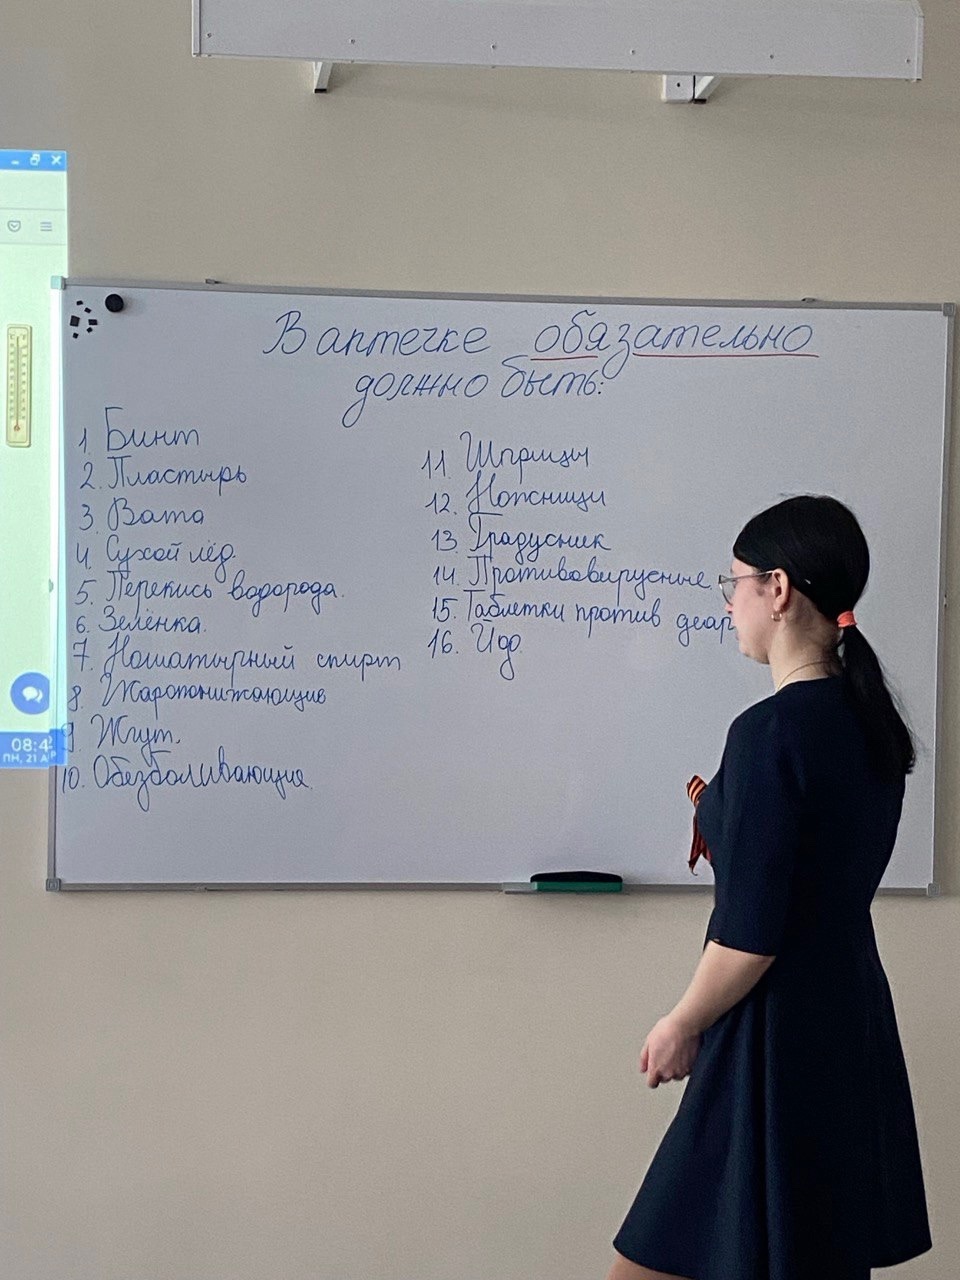 В аптечке обязательно
должно быть:
1. Бинт
2. Пластырь
3. Вата
4. Сухой лёд.
5. Перекись водорода.
6. Зелёнка.
7. Нашатырный спирт
8. Жаропонижающие
9. Жгут.
10. Обезболивающие.
11. Шприцы
12. Ножницы
13. Градусник
14. Противовирусные
15. Таблетки против
16. Йод.
08:4
ПН, 21